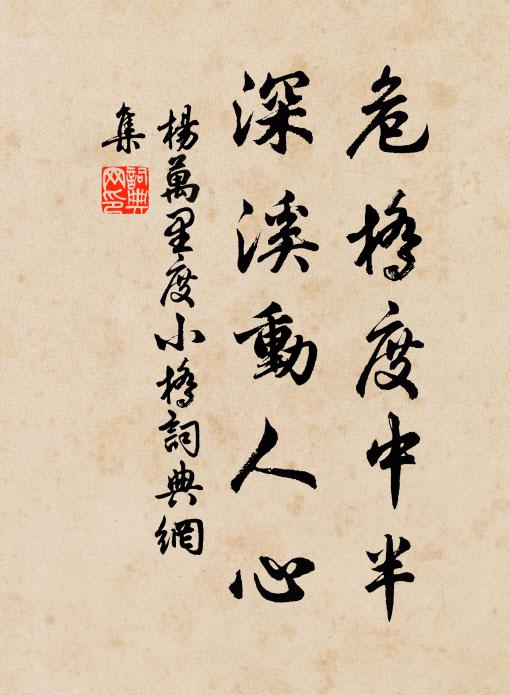 危橋度中半
深溪動人心
楊萬里度小橋詞典網
集
詞典
网印